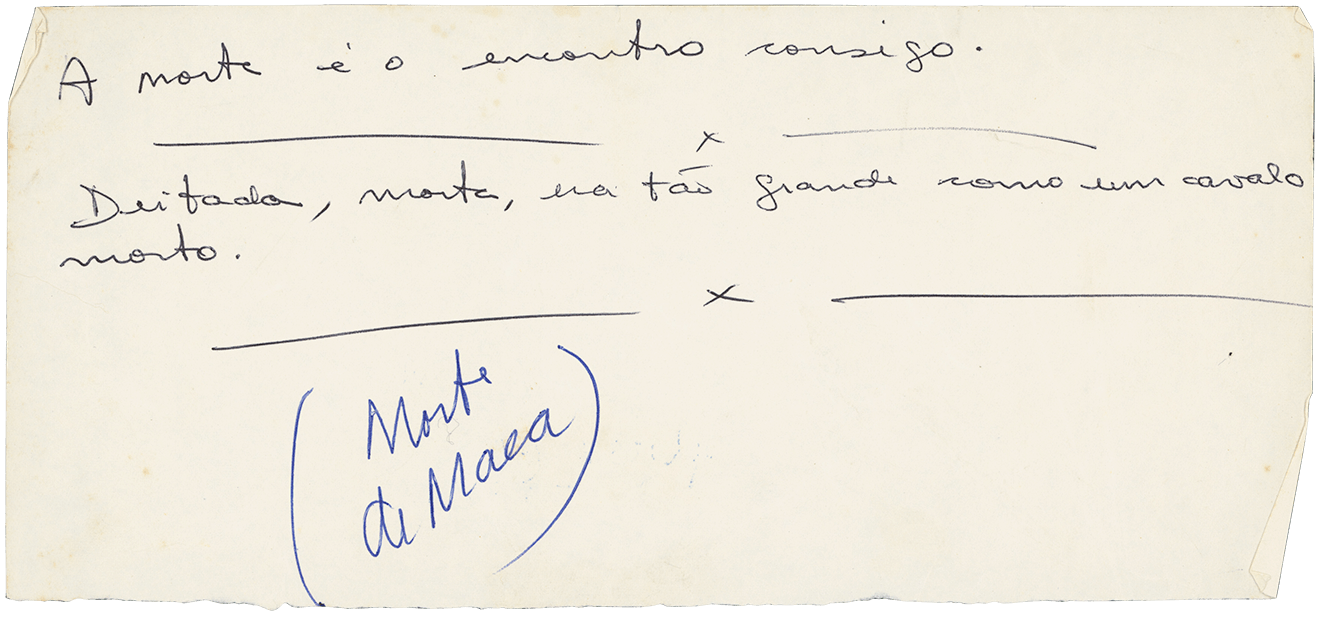 A morte é o encontro consigo.
x
Deitada, morta, era tão grande como um cavalo
morto.
x
(Morte
de Maca)